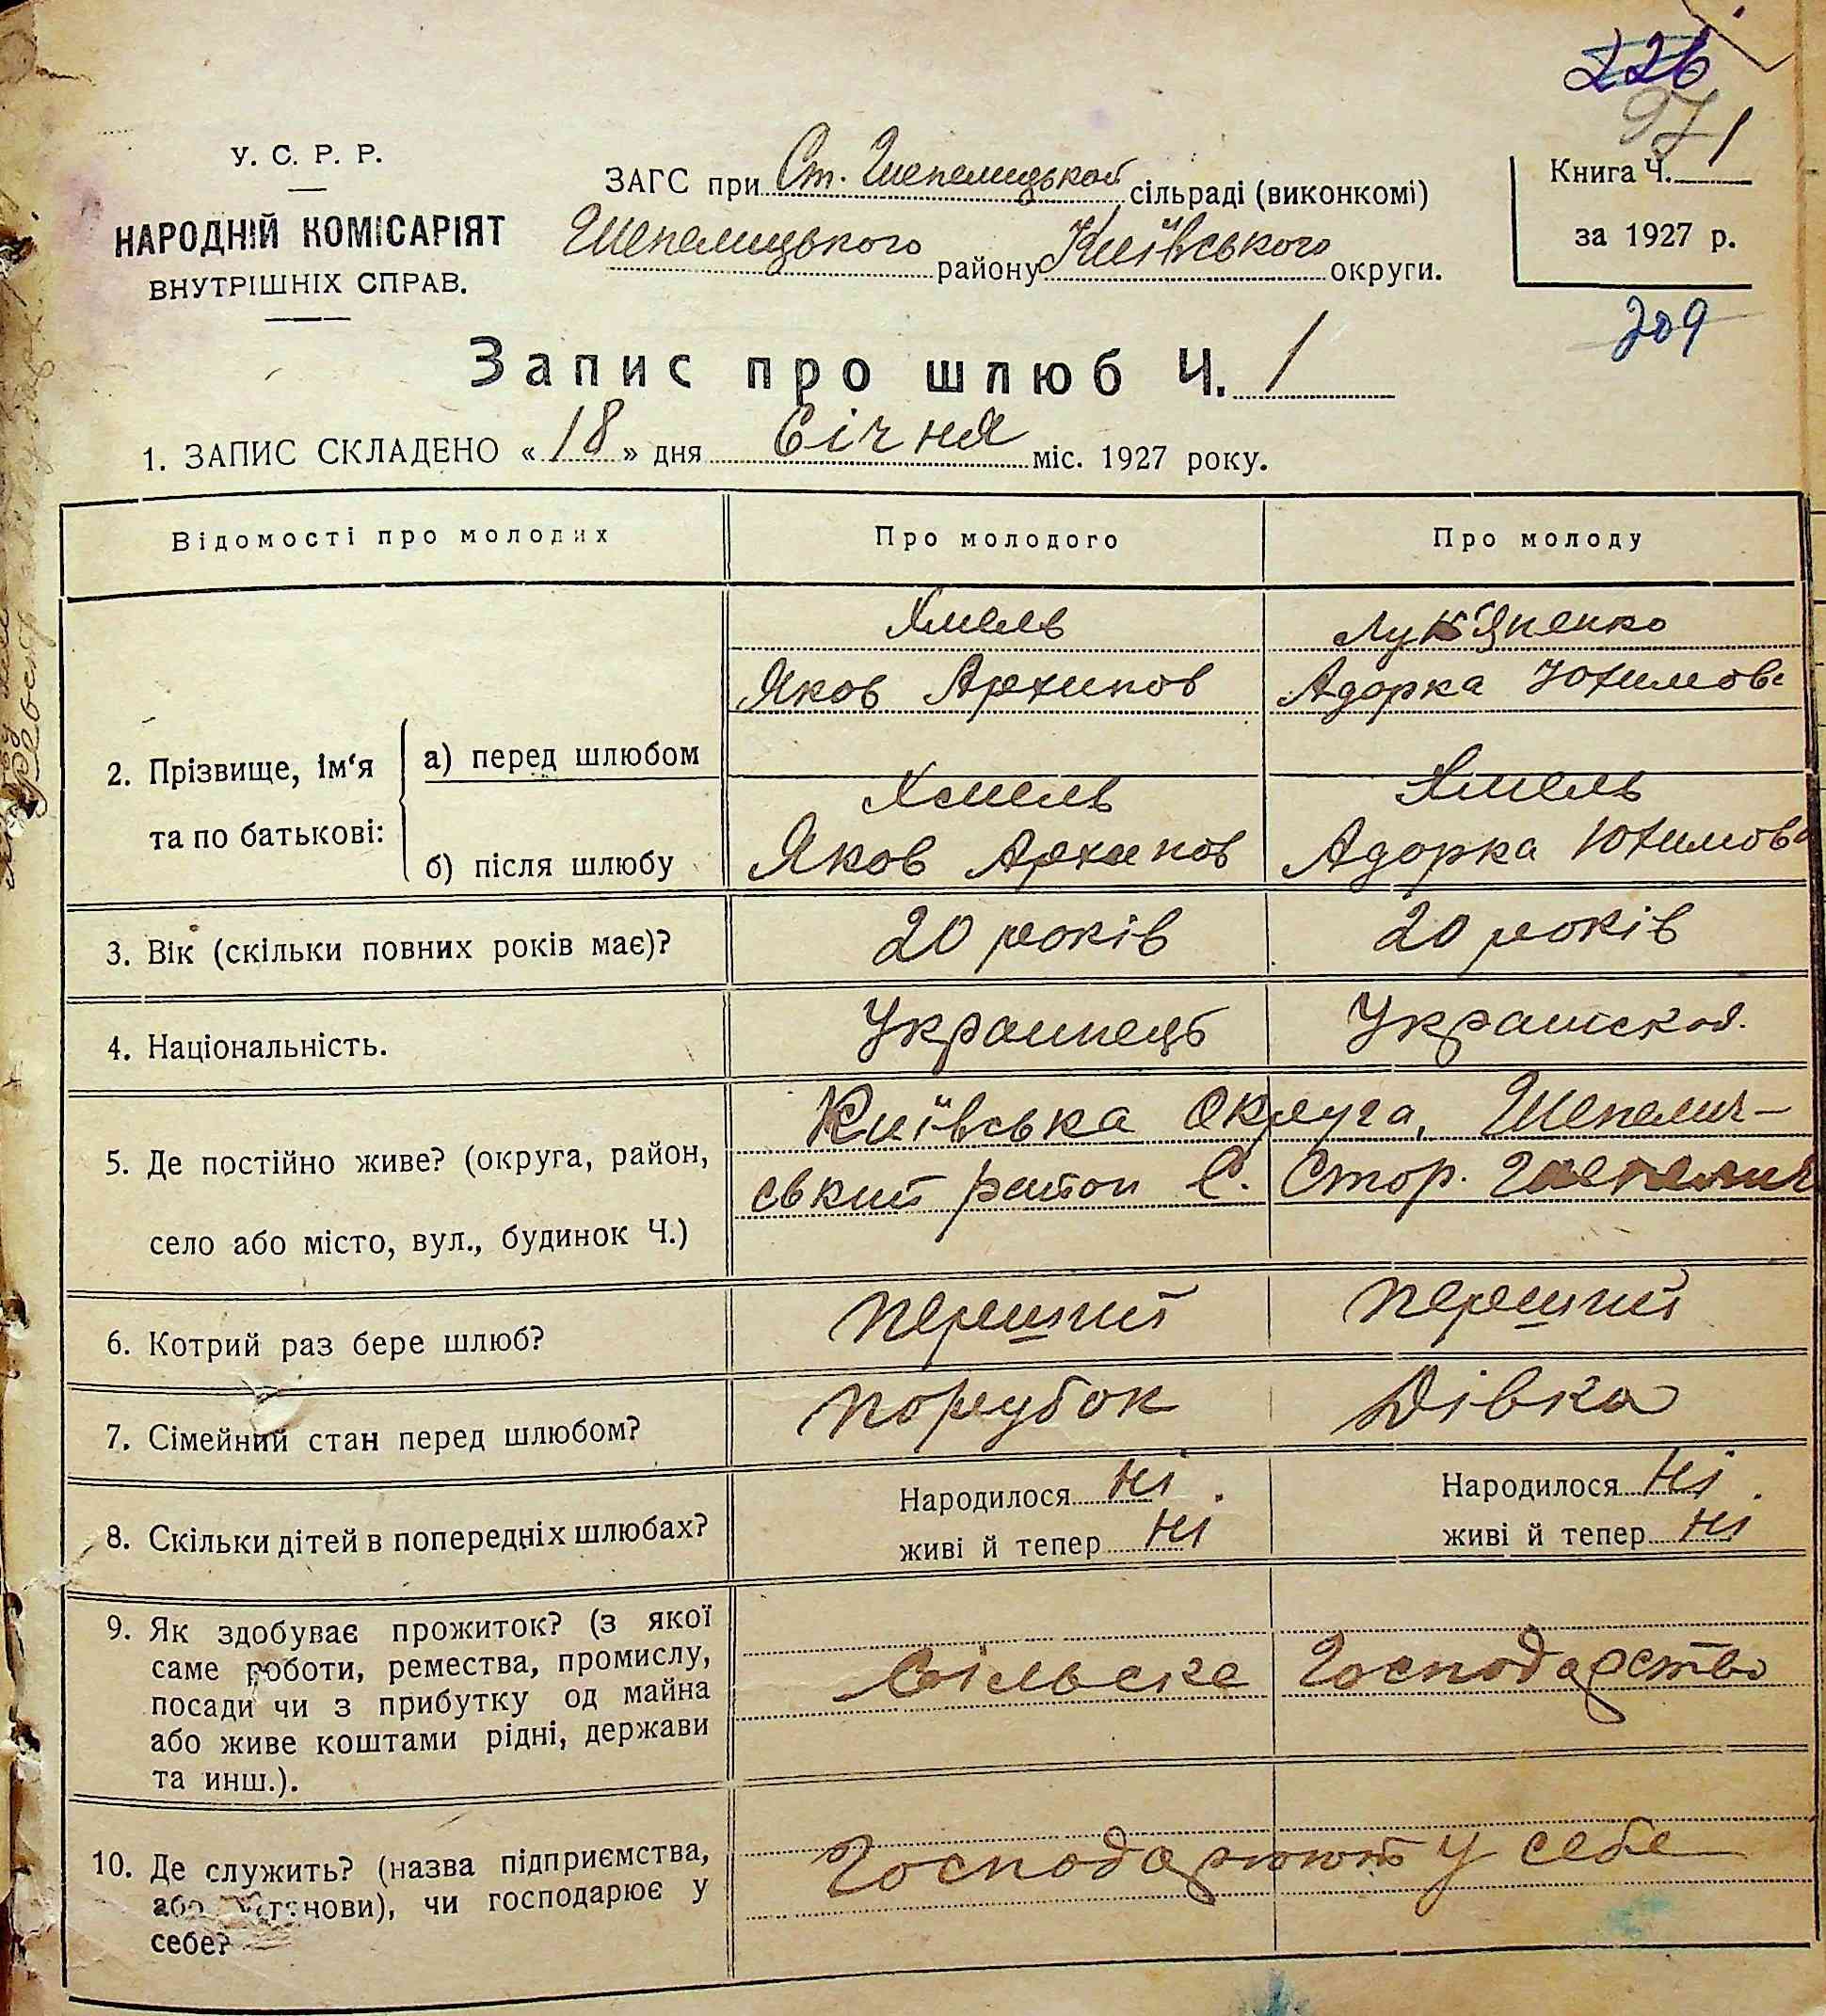 226
97
У. С. Р. Р.
НАРОДНІЙ КОМІСАРІЯТ
ВНУТРІШНІХ СПРАВ.
ЗАГС при Ст. Шепелицькой сільраді (виконкомі)
Шепелицького району Київського округи.
Книга Ч. 1
за 1927 р.
209
Запис про шлюб Ч. 1
1. ЗАПИС СКЛАДЕНО « 18 » дня Січня міс. 1927 року.
Відомості про молодих
Про молодого
Про молоду
2. Прізвище, ім'я
та по батькові:
а) перед шлюбом
Хмель
Яков Архипов
Лук'яненко
Адорка Юхимов
б) після шлюбу
Хмель
Яков Архипов
Хмель
Адорка Юхимова
3. Вік (скільки повних років має)?
20 років
20 років
4. Національність.
Украинець
Украиская.
5. Де постійно живе? (округа, район,
село або місто, вул., будинок Ч.)
Київська округа, Шепелич-
ський район С. Стор. Шепелич
6. Котрий раз бере шлюб?
перший
перший
7. Сімейний стан перед шлюбом?
порубок
Дівка
8. Скільки дітей в попередніх шлюбах?
Народилося Ні
живі й тепер Ні
Народилося Ні
живі й тепер Ні
9. Як здобуває прожиток? (з якої
саме роботи, ремества, промислу,
посади чи з прибутку од майна
або живе коштами рідні, держави
та инш.).
Сільске Господарство
10. Де служить? (назва підприємства,
або установи), чи господарює у
себе?
Господарюють у себе